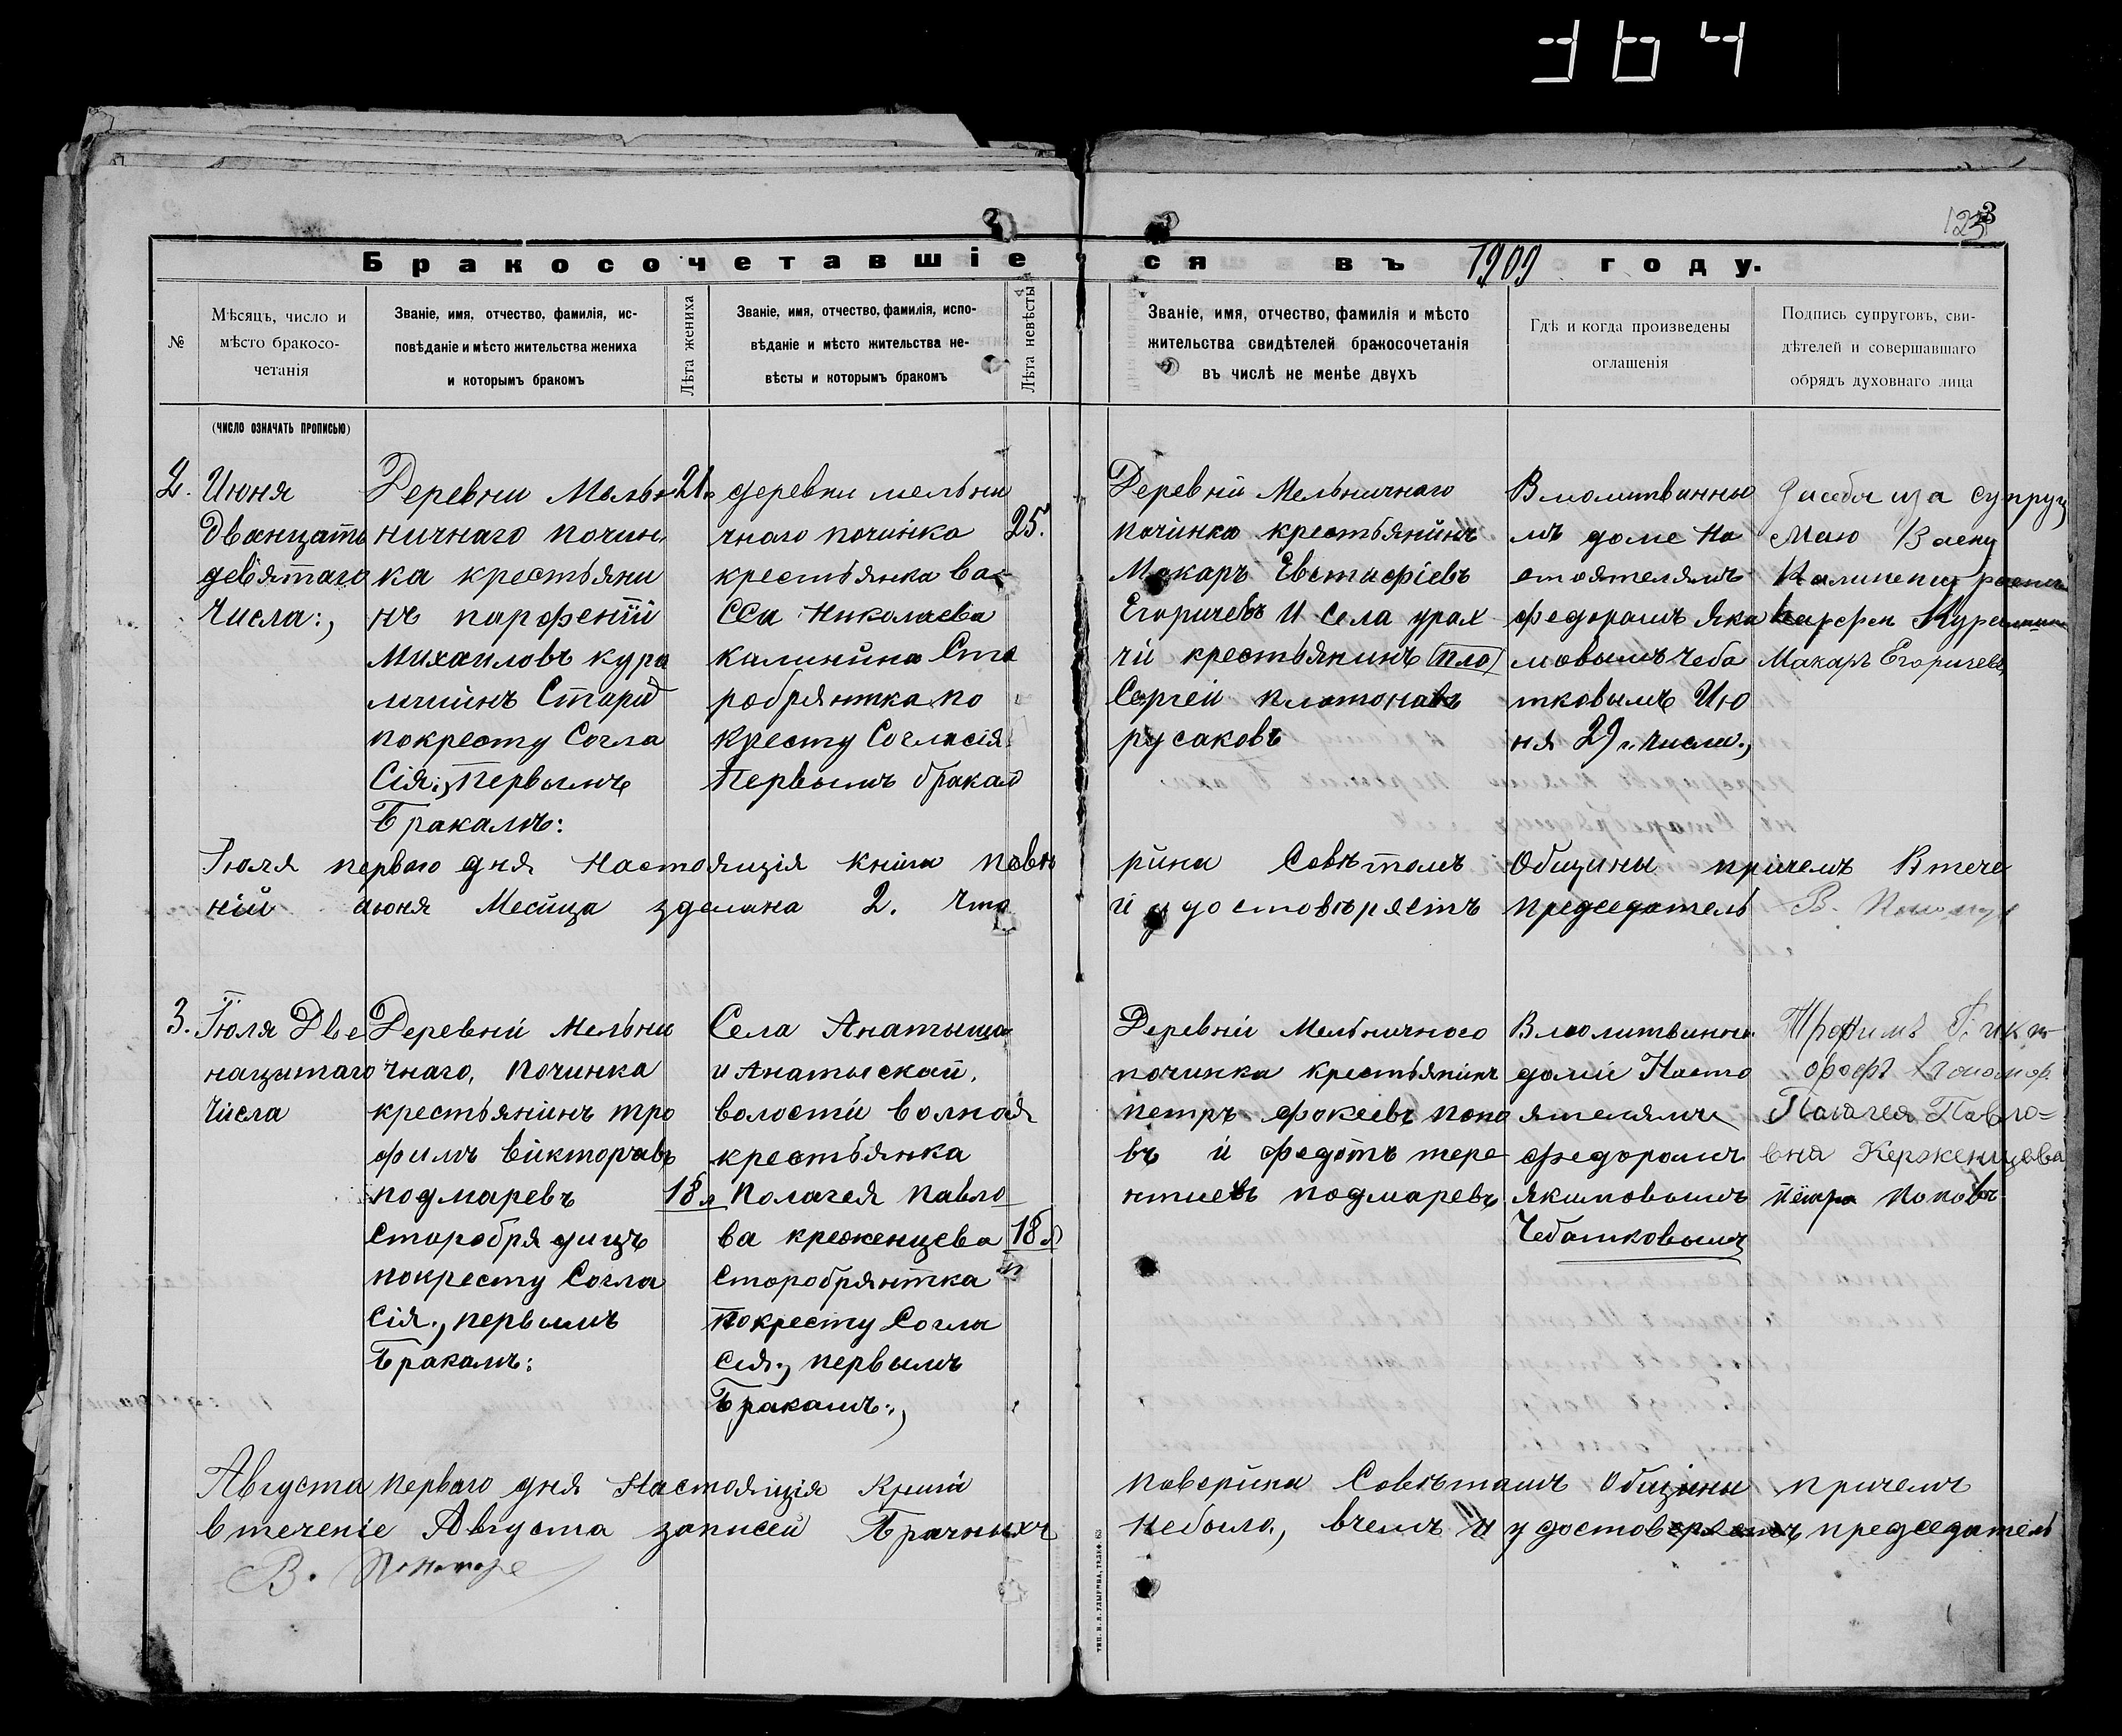 364
2
3
123
Бракосочетавшіе
ся въ 1909 году.
№
Мѣсяцъ, число и
мѣсто бракосо-
четанія
Званіе, имя, отчество, фамилія, ис-
повѣданіе и мѣсто жительства жениха
и которымъ бракомъ
Лѣта жениха
Званіе, имя, отчество, фамилія, испо-
вѣданіе и мѣсто жительства не-
вѣсты и которымъ бракомъ
Лѣта невѣсты
Званіе, имя, отчество, фамилія и мѣсто
жительства свидѣтелей бракосочетанія
въ числѣ не менѣе двухъ
Гдѣ и когда произведены
оглашенія
Подпись супруговъ, сви-
дѣтелей и совершавшаго
обрядъ духовнаго лица
(число означать прописью)
2.
Июня
Дванцать
девятаго
Числа:,
Деревни Мель
ничнаго почин
ка крестьяни
нъ парфений
Михаиловъ кура
Старид
покресту Согла
Сія:, первымъ
Бракамъ:
21.
деревни мельни
чнаго починка
крестьянка ва-
сса Николаева
калинина Ста
робрянтка по
Кресту Согласія.
Первымъ бракад
25.
Деревни Мельничнаго
починка крестьянинъ
Макаръ Евстафіевъ
Егоричевъ И Села урах
чи крестьянинъ (пло)
Сергей платонавъ
русаковъ
Вмолитвинно
мъ доме На
стоятелямъ
федорамъ Яка
мовымъ чеба
тковымъ Ию
ня 29 г. числа.,
За себя и за супругу
мою Васу
парфен
Макаръ Егоричевъ
Іюля первого дня Настоящія книга повѣ
рина Совѣтомъ Общины причемъ Втече
ній июня Месица зделана 2. Что
и удостовѣряетъ председатель В.
3.
Іюля Две
нацатаго
Числа
Деревній Мельни
чнаго, починка
крестьянинъ тро
фимъ викторавъ
подмаревъ
Старобрядицъ
покресту Согла
Сія., первымъ
Бракамъ:
18л
Села Анатыша
и Анатыской.
волости волная
крестьянка
Полагея павло
ва креженцева
Старобрянтка
Покресту Согла
сія., первымъ
Бракамъ:,
18л
Деревній Мельничного
починка крестьянинъ
петръ фокеевъ попо
въ и федотъ тере
нтиевъ подмаревъ
Вмолитвинно
доми Насто
ятелямъ
федорамъ
якимовымъ
Чебатковымъ
Трофимъ
Палагея Павло=
вна Керженцова
пётръ поповъ
Августа первого дня Настоящія Книги
повѣрина Совѣтамъ Общины причемъ
втеченіе Августа записей Брачныхъ
Небыло, вчемъ и удостоверяетъ председатель
В.
тип. в. в.